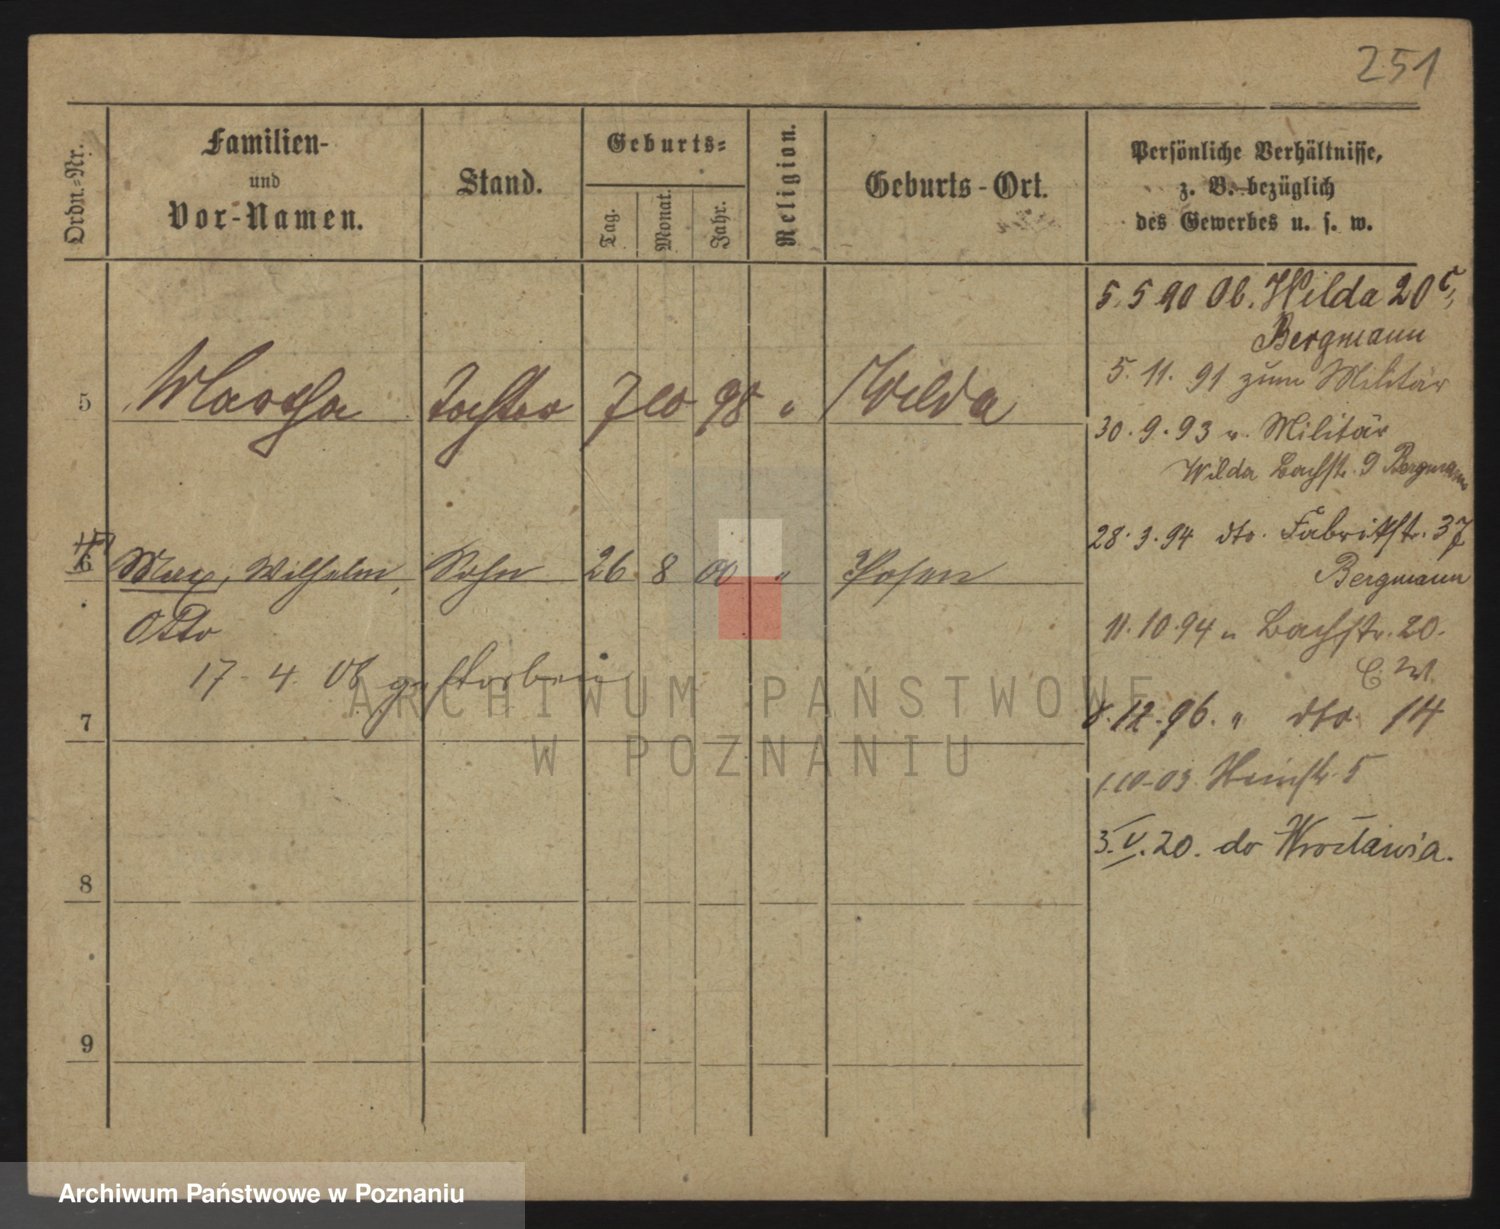 251
Ordn.-Nr.
Familien-
und
Vor-Namen.
Stand.
Geburts-
Tag.
Monat.
Jahr.
Religion.
Geburts-Ort.
Persönliche Verhältnisse,
z. B. bezüglich
des Gewerbes u. s. w.
5 Martha Tochter 7 10 98 " Wilda
6 Max, Wilhelm, Sohn 26 8 00 " Posen
Otto
17-4. 06 gestorben
7
8
9
5.5 90 Ob. Wilda 20
Bergmann
5. 11. 91 zum Militär
30. 9. 93 v. Militär
Wilda Bachstr. 9 Bergmann
28. 3. 94 dto. Fabrikstr. 37
Bergmann
11. 10. 94 " Bachstr. 20.
8. 12. 96. " dto 14
1.10.03. 5
3. V. 20. do Wrocławia.
ARCHIWUM PAŃSTWOWE
W POZNANIU
Archiwum Państwowe w Poznaniu